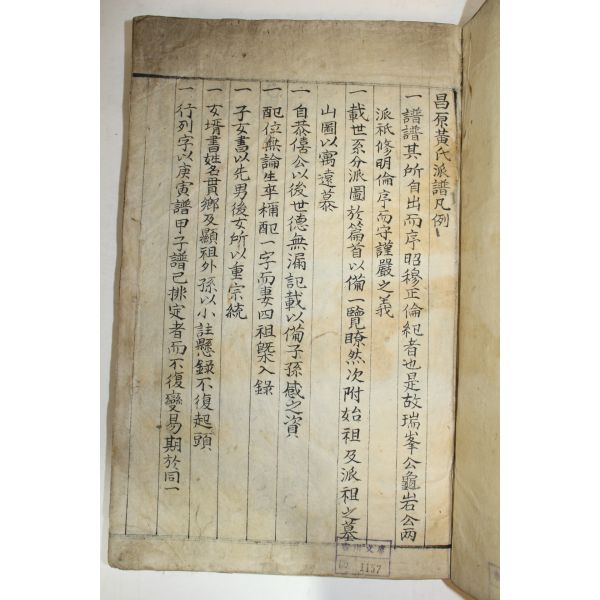 昌原黃氏派譜凡例
一 譜譜其所自出而序昭穆正倫紀者也是故瑞峯公龜岩公兩
派祇修明倫序而守謹嚴之義
一 載世系分派圖於篇首以備一覽瞭然次附始祖及派祖之墓
山圖以寓遠慕
一 自恭僖公以後世德無漏記載以備子孫感之資
一 配位無論生卒稱配一字而妻四祖槩入錄
一 子女書以先男後女所以重宗統
一 女壻書姓名貫鄕及顯祖外孫以小註懸錄不復起頭
一 行列字以庚寅譜甲子譜已排定者而不復變易期於同一
1137